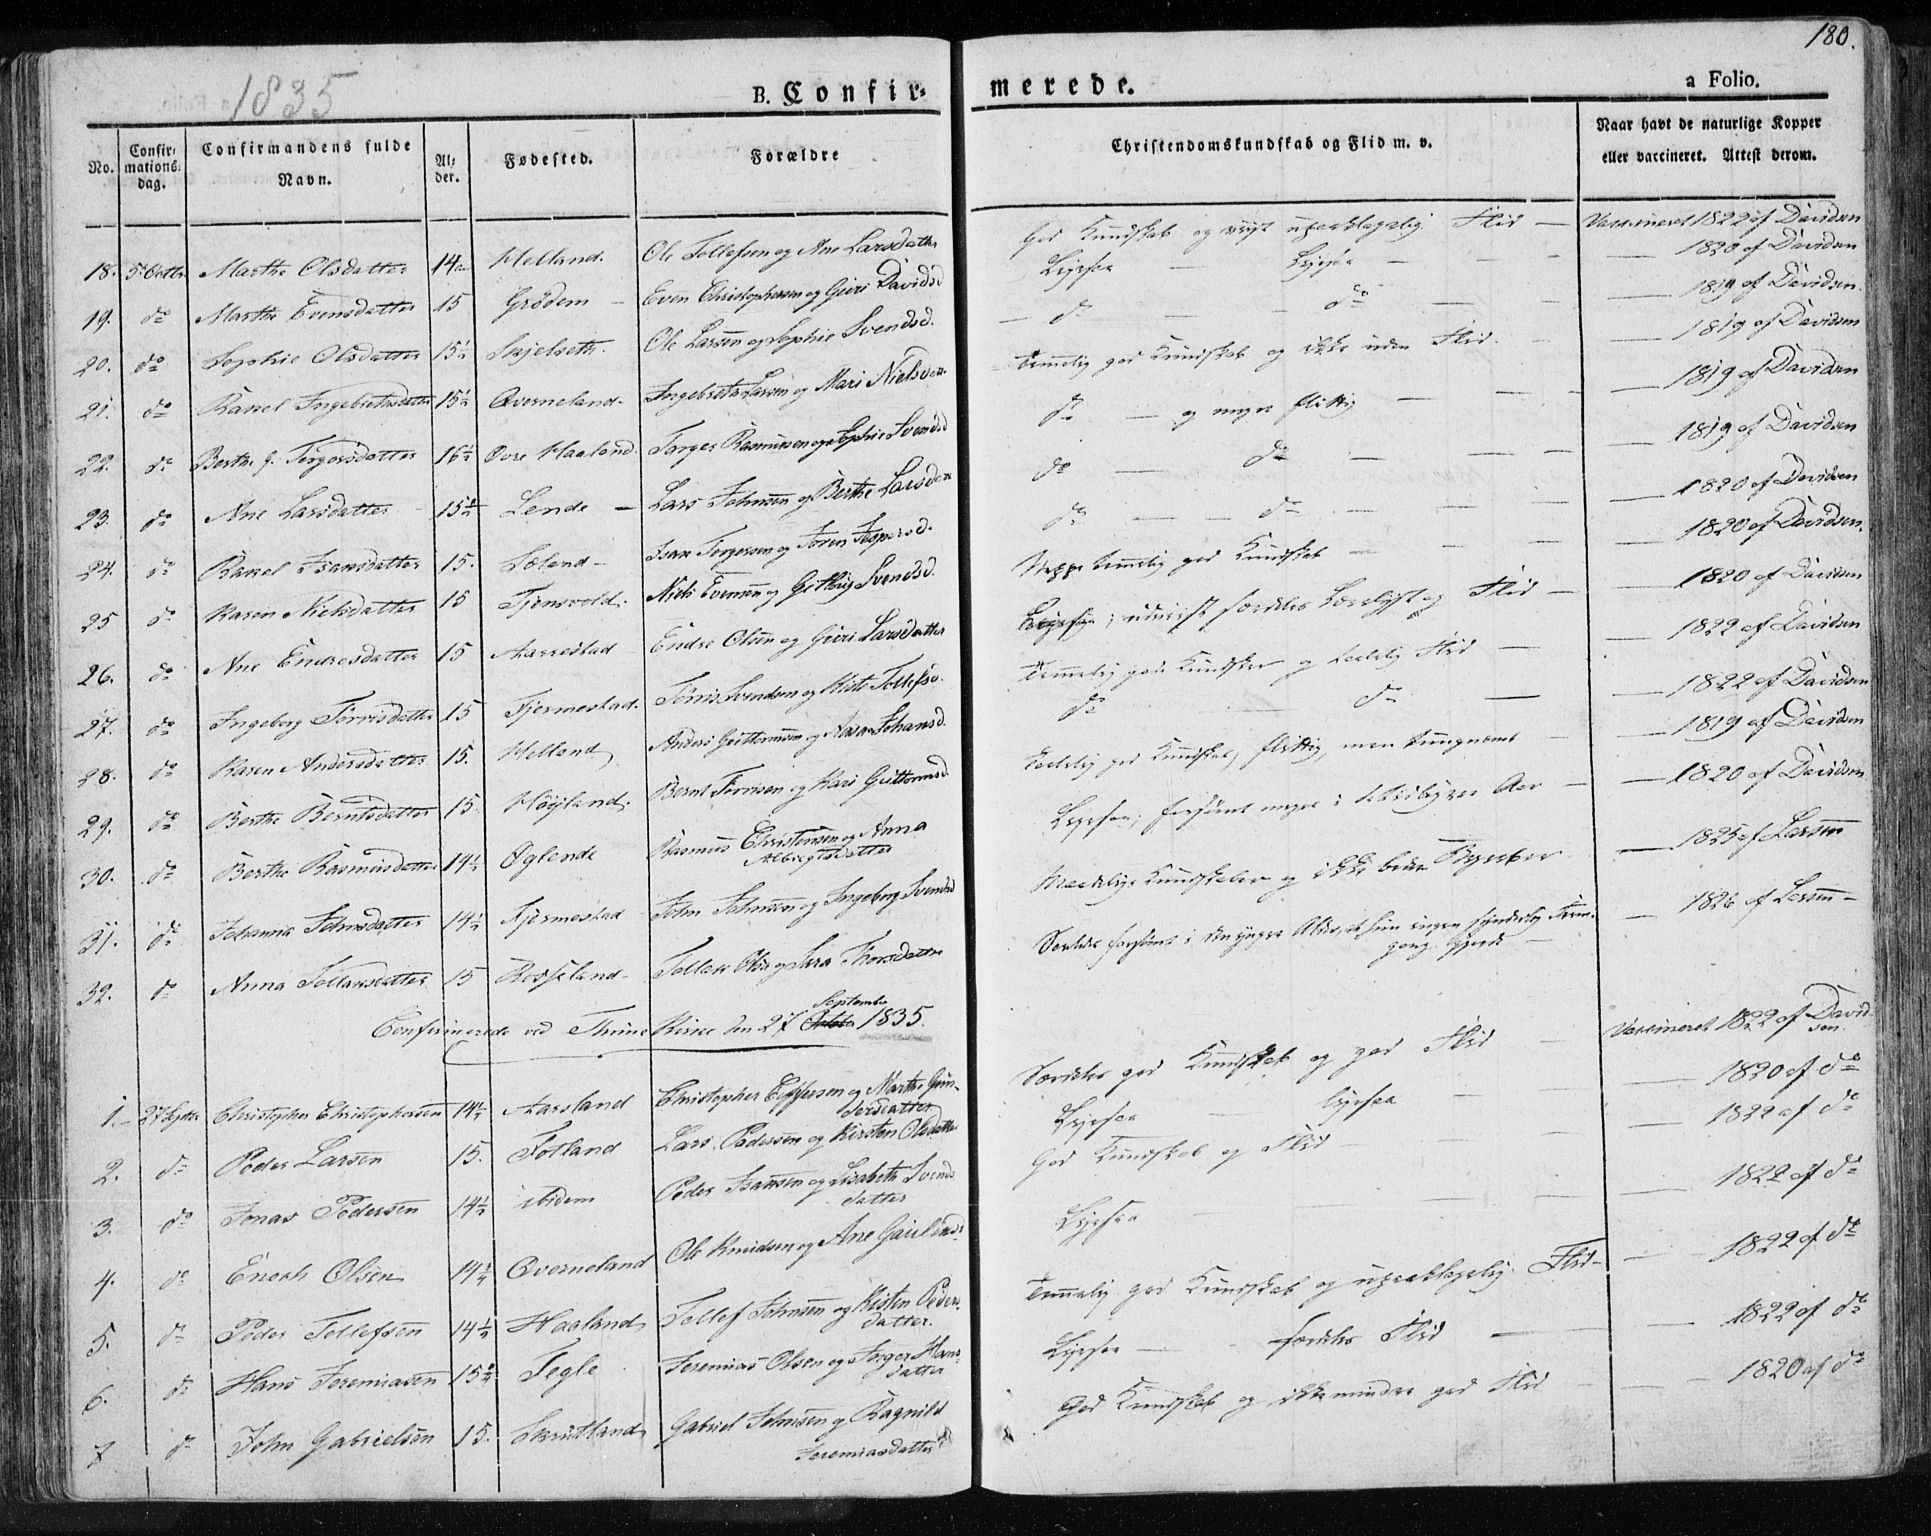 180.
1835
B. Confir= merede.
a Folio.
No. Confir= mations= dag. Confirmandens fulde Navn. Al= der. Fødested. Forældre Christendomskundskab og Flid m. v. Naar havt de naturlige Kopper eller vaccineret. Attest derom.
18. 5 Octbr Marthe Olsdatter 14 Helland. Ole Tollefsen og Ane Larsdatter God Kundskab og upaaklagelig Flid — Vaccineret 1822 af Davidsen
19. do Marthe Evensdatter 15 Grödem — Even Christophersen og Guri Davidsd Ligesaa — Ligesaa — 1820 af Davidsen
20. do Sophie Olsdatter 15½ Skjelseth. Ole Larsen og Sophie Svendsd. do do — 1819 af Davidsen.
21. do Rakel Ingebretsdatter 15½ Qverneland. Ingebret Larsen og Mari Nielsdatr. Temmelig god Kundskab og ikke uden Flid. — 1819 af Davidsen
22. do Berthe G. Torgersdatter 16½ Övre Haaland. Torger Rasmussen og Sophie Svendsd do — og meget flittig — 1819 af Davidsen
23. do Ane Larsdatter 15 Lende — Lars Johnsen og Berthe Larsdatr do — do — 1819 af Davidsen
24. do Rakel Isaksdatter 15. Lœland — Isak Torgersen og Soren Jespersd. do — do — 1820 af Davidsen
25 do Karen Nielsdatter 15 Tjensvold. Niels Evensen og Gitlaug Svendsd. Neppe temmelig god Kundskab — 1820 af Davidsen.
26. do Ane Endresdatter 15 Aarrestad — Endre Olsen og Guri Larsdatter Ligesaa; Flid — 1820 af Davidsen
27. do Ingeborg Törrisdatter 15 Fjermestad. Törris Svendsen og Kitte Tollefsd. Temmelig gode Kundskaber og Flid — 1822 af Davidsen
28. do Karen Andersdatter 15. Helland Anders Guttormsen og Aasa Johansd. do do — 1822 af Davidsen
29. do Berthe Berntsdatter 15. Höÿland. Bernt Törrisen og Kari Guttormsd. god Kundskab, flittig, men tungnemt — 1819 af Davidsen
30. do Berthe Rasmusdatter 14½ Öglende Rasmus Christensen og Anna Albregtsdatter Ligesaa; forsömt meget i — 1820 af Davidsen
31. do Johanna Johnsdatter 14½ Fjermestad John Johnsen og Ingeborg Svendsd Kundskaber og ikke — 1825 af Larsen
32. do Anna Tollaksdatter 15 Rosseland — Tollak Olsen og Sara Thorsdatter forsömt i den yngre Alder, ingen synderlig Frem= gang gjorde — 1826 af Larsen —
Confirmerede ved Thime Kirke den 27 October September 1835.
1. 27 Septbr Christopher Christophersen 14½ Aarsland Christopher Christophersen og Marthe Gun= dersdatter Særdeles god Kundskab og god Flid — Vaccineret 1822 af David= sen.
2. do Peder Larsen 15. Fotland Lars Pedersen og Kirsten Olsdatter Ligesaa — ligesaa — 1820 af do
3. do Jonas Pedersen 14½ ibidem Peder Isaksen og Lisabeth Svends datter God Kundskab og Flid — 1822 af do
4. do Enoch Olsen 14¾ Qverneland Ole Knudsen og Ane Ligesaa — 1822 af do
5. do Peder Tollefsen 14½ Haaland Tollef Johnsen og Kisten Peders= datter. Temmelig god Kundskab og upaaklagelig Flid — 1822 af do
6. do Hans Jeremiasen 15 Tegle Jeremias Olsen og Inger Hans= datter Ligesaa — særdeles Flid — 1822 af do
7 do John Gabrielsen 15. Skrutland Gabriel Johnsen og Ragnild Jeremiasdatter God Kundskab og ikke mindre god Flid — 1820 af do